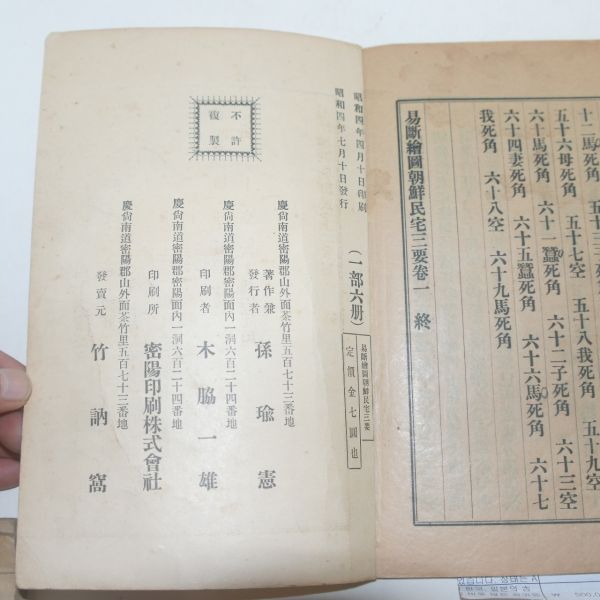 十二馬死角
五十六母死角 五十七空 五十八我死角 五十九空
六十馬死角 六十一蠶死角 六十二子死角 六十三空
六十四妻死角 六十五蠶死角 六十六馬死角 六十七
我死角 六十八空 六十九馬死角
易斷繪圖朝鮮民宅三要卷一 終
不許
複製
昭和四年四月十日印刷
昭和四年七月十日發行
(一部六册)
易斷繪圖朝鮮民宅三要
定價金七圓也
慶尙南道密陽郡山外面茶竹里五百七十三番地
著作兼
發行者 孫瑜憲
慶尙南道密陽郡密陽面內一洞六百二十四番地
印刷者 木脇一雄
慶尙南道密陽郡密陽面內一洞六百二十四番地
印刷所 密陽印刷株式會社
慶尙南道密陽郡山外面茶竹里五百七十三番地
發賣元 竹訥窩